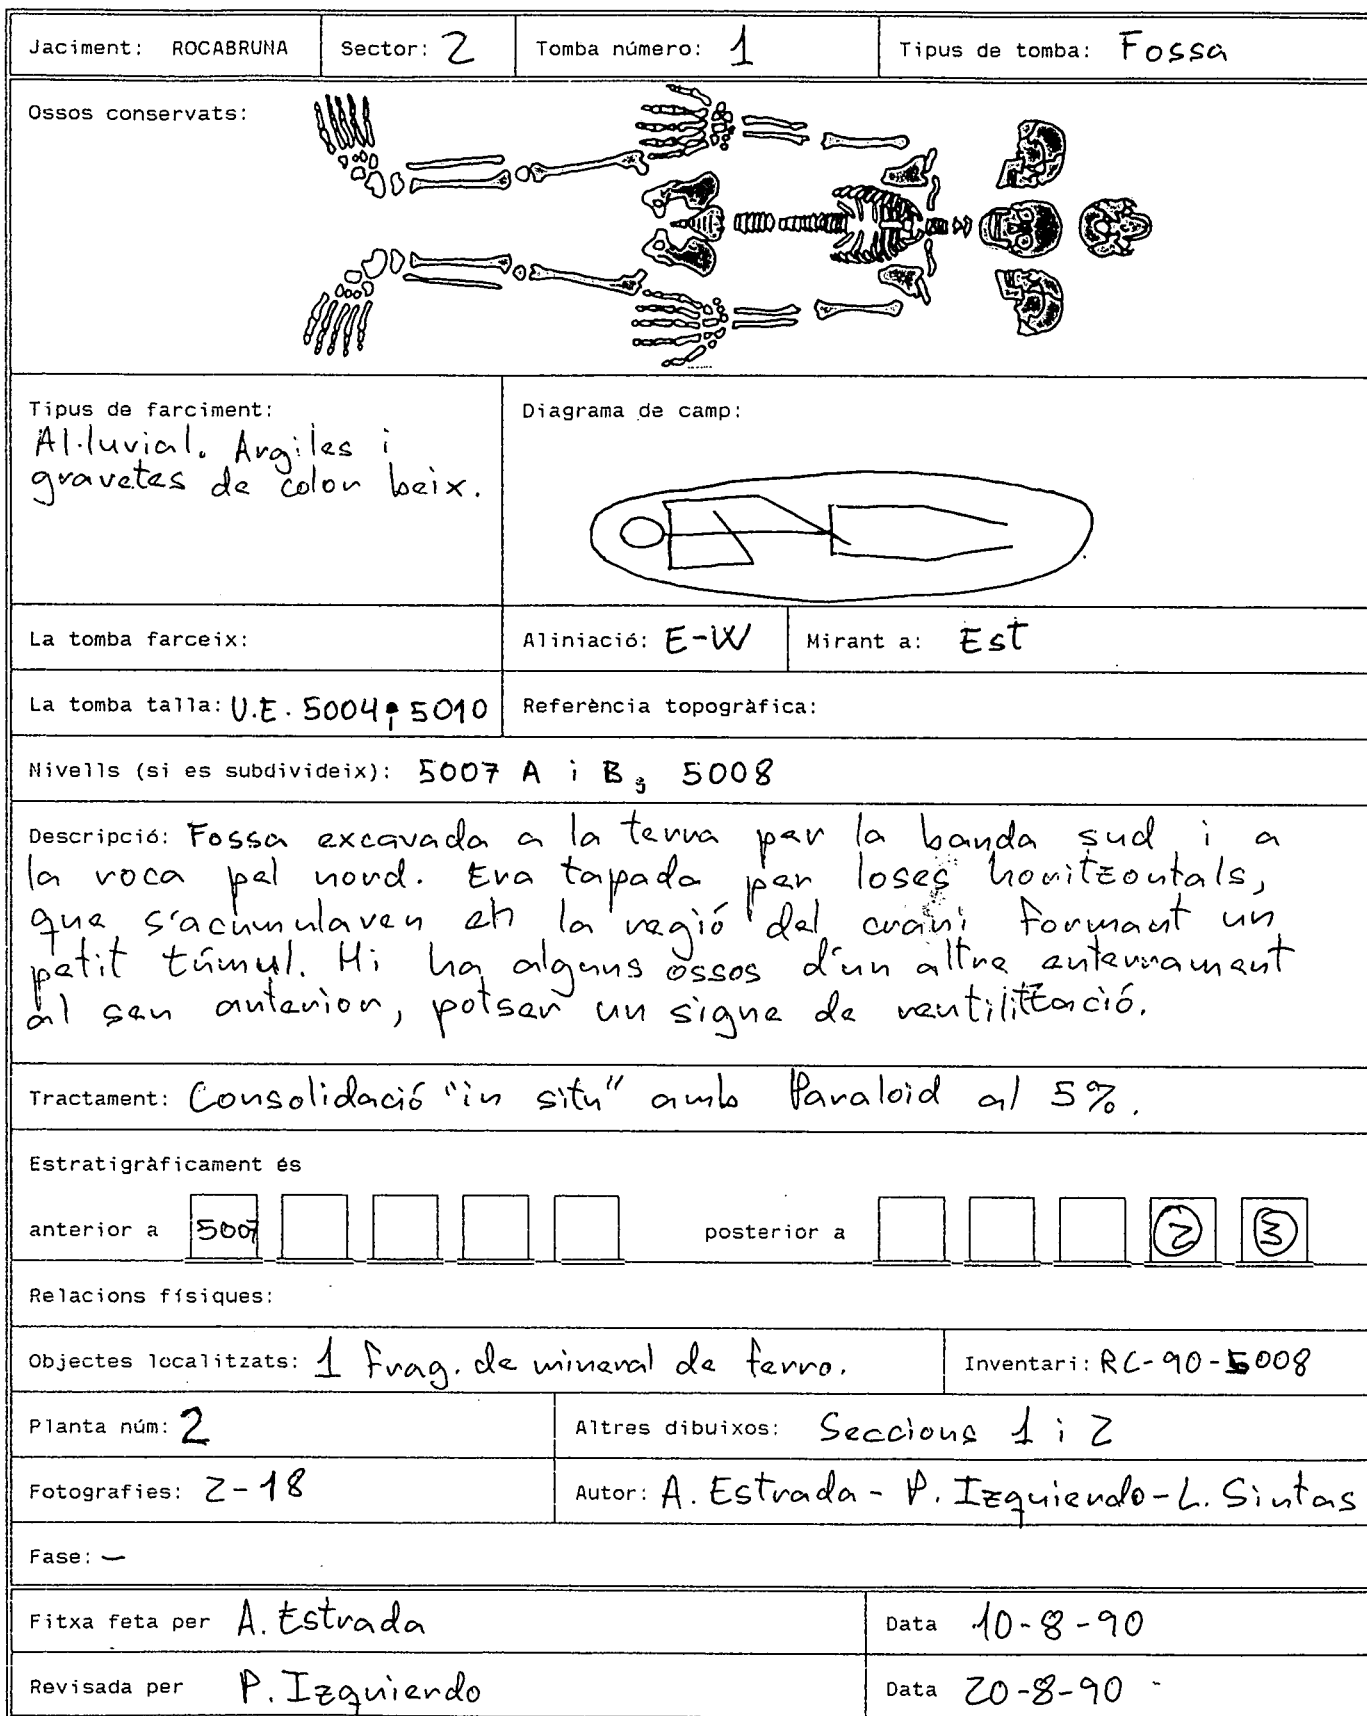 Jaciment: ROCABRUNA Sector: 2 Tomba número: 1 Tipus de tomba: Fossa
Ossos conservats:
Tipus de farciment: Diagrama de camp:
Al·luvial. Argiles i
gravetes de color beix.
La tomba farceix: Aliniació: E-W Mirant a: Est
La tomba talla: U.E. 5004 i 5010 Referència topogràfica:
Nivells (si es subdivideix): 5007 A i B, 5008
Descripció: Fossa excavada a la terra per la banda sud i a
la roca pel nord. Era tapada per loses horitzontals,
que s'acumulaven en la regió del crani formant un
petit túmul. Hi ha alguns ossos d'un altre enterrament
al seu anterior, potser un signe de reutilització.
Tractament: Consolidació "in situ" amb Paraloid al 5%.
Estratigràficament és
anterior a 5007 posterior a 2 3
Relacions físiques:
Objectes localitzats: 1 Frag. de mineral de ferro. Inventari: RC-90-5008
Planta núm: 2 Altres dibuixos: Seccions 1 i 2
Fotografies: 2-18 Autor: A. Estrada - P. Izquierdo - L. Sintas
Fase: -
Fitxa feta per A. Estrada Data 10-8-90
Revisada per P. Izquierdo Data 20-8-90